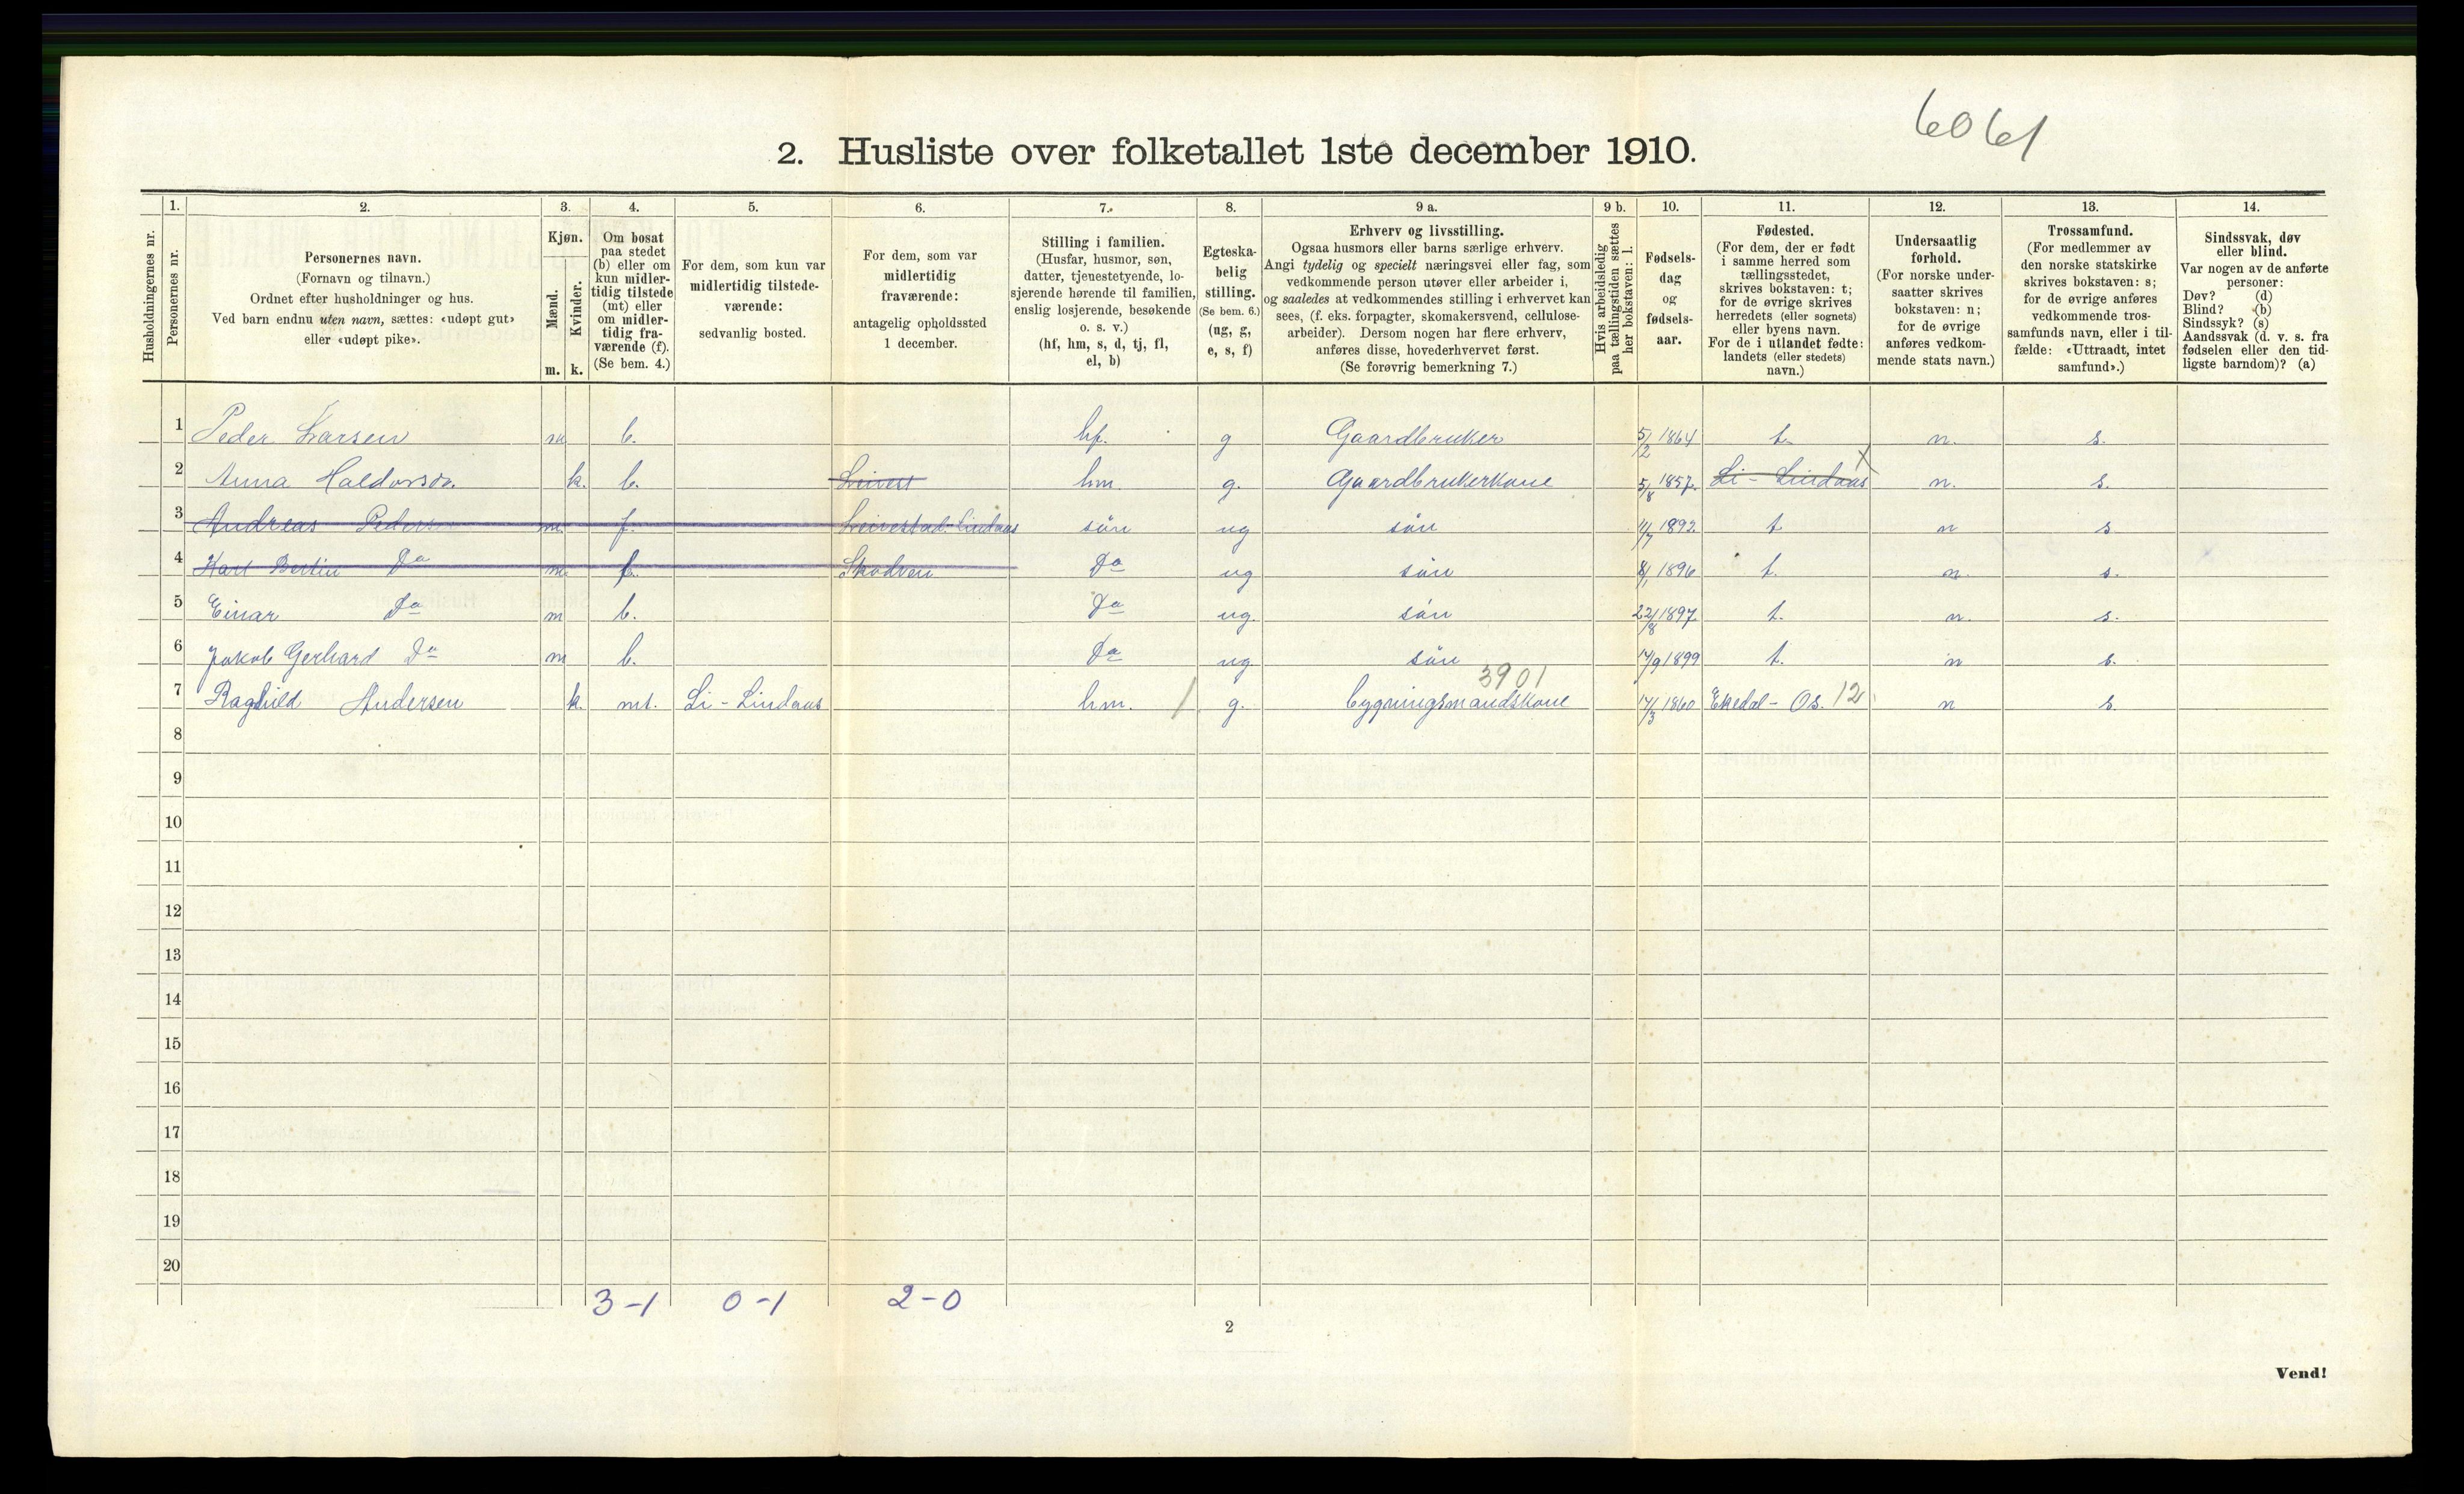 6061
2. Husliste over folketallet 1ste december 1910.
1. 2. 3. 4. 5. 6. 7. 8. 9 a. 9 b. 10. 11. 12. 13. 14.
Husholdningernes nr.
Personernes nr.
Personernes navn.
(Fornavn og tilnavn.)
Ordnet efter husholdninger og hus.
Ved barn endnu uten navn, sættes: «udøpt gut»
eller «udøpt pike».
Kjøn.
Mænd.
Kvinder.
m. k.
Om bosat
paa stedet
(b) eller om
kun midler-
tidig tilstede
(mt) eller
om midler-
tidig fra-
værende (f).
(Se bem. 4.)
For dem, som kun var
midlertidig tilstede-
værende:
sedvanlig bosted.
For dem, som var
midlertidig
fraværende:
antagelig opholdssted
1 december.
Stilling i familien.
(Husfar, husmor, søn,
datter, tjenestetyende, lo-
sjerende hørende til familien,
enslig losjerende, besøkende
o. s. v.)
(hf, hm, s, d, tj, fl,
el, b)
Egteska-
belig
stilling.
(Se bem. 6.)
(ug, g,
e, s, f)
Erhverv og livsstilling.
Ogsaa husmors eller barns særlige erhverv.
Angi tydelig og specielt næringsvei eller fag, som
vedkommende person utøver eller arbeider i,
og saaledes at vedkommendes stilling i erhvervet kan
sees, (f. eks. forpagter, skomakersvend, cellulose-
arbeider). Dersom nogen har flere erhverv,
anføres disse, hovederhvervet først.
(Se forøvrig bemerkning 7.)
Hvis arbeidsledig
paa tællingstiden sættes
her bokstaven: l.
Fødsels-
dag
og
fødsels-
aar.
Fødested.
(For dem, der er født
i samme herred som
tællingsstedet,
skrives bokstaven: t;
for de øvrige skrives
herredets (eller sognets)
eller byens navn.
For de i utlandet fødte:
landets (eller stedets)
navn.)
Undersaatlig
forhold.
(For norske under-
saatter skrives
bokstaven: n;
for de øvrige
anføres vedkom-
mende stats navn.)
Trossamfund.
(For medlemmer av
den norske statskirke
skrives bokstaven: s;
for de øvrige anføres
vedkommende tros-
samfunds navn, eller i til-
fælde: «Uttraadt, intet
samfund».)
Sindssvak, døv
eller blind.
Var nogen av de anførte
personer:
Døv? (d)
Blind? (b)
Sindssyk? (s)
Aandssvak (d. v. s. fra
fødselen eller den tid-
ligste barndom)? (a)
1 Peder Larsen m b. hf. g Gaardbruker 5/2 1864 t. n. s.
2 Anna Haldorsdr. k. b. hm g. Gaardbrukerkone 5/8 1857. Li - Lindaas X n. s.
3 Andreas Peders m. f. Leivestad-Lindaas sön ug sön 4/7 1892. t n s
4 Karl Bertin Do m. f. Skodven Do ug sön 8/1 1896 t. n. s.
5 Einar Do m b. Do ug. sön 22/8 1897. t. n. s.
6 Jakob Gerhard Do m b. Do ug. sön 14/9 1899 t. n s.
3901
7 Raghild Andersen k. mt. Li - Lindaas hm. / g. bygningsmandskone 14/3 1860 Ekedal - Os. 12 n s.
8
9
10
11
12
13
14
15
16
17
18
19
20
3-1 0-1 2-0
2
Vend!